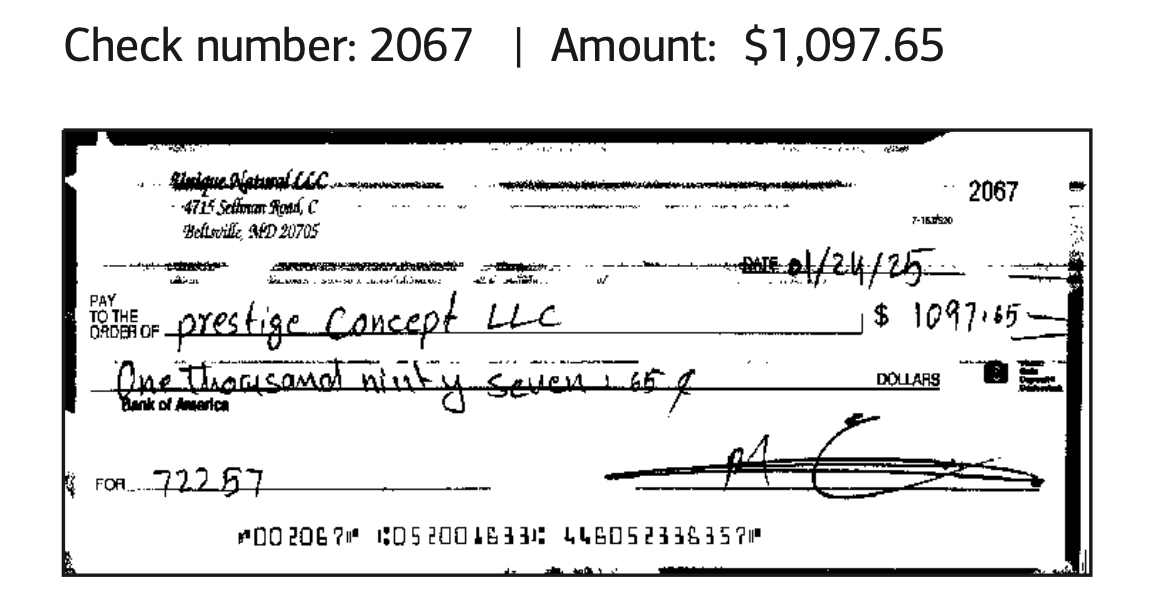 Check number: 2067 | Amount: $1,097.65
Unique Natural LLC
4715 Sellman Road, C
Beltsville, MD 20705
2067
DATE 01/24/25
PAY
TO THE
ORDER OF prestige Concept LLC $ 1097.65
One thousand ninty seven . 65 ¢ DOLLARS
Bank of America
FOR 72257
⑈002067⑈ ⑆052001633⑆ 446052336357⑈